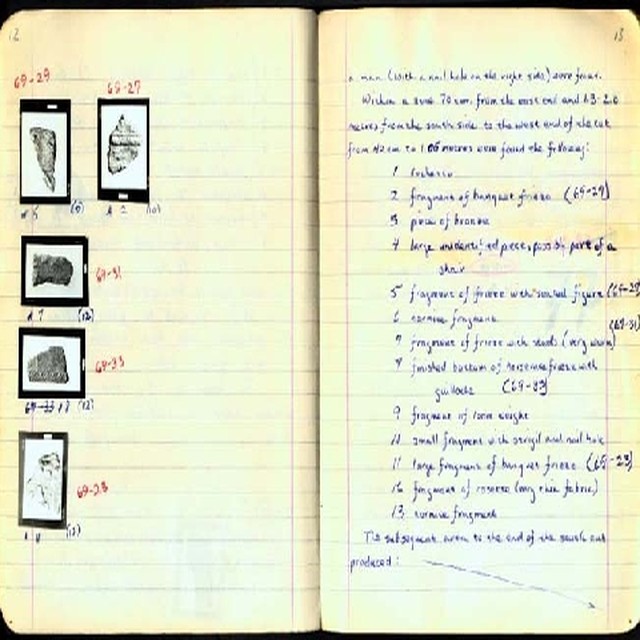 12
69-29
69-27
(10)
69-31
(12)
69-33
(12)
69-23
(12)
13
a man (with a nail hole on the right side) were found.
Within a area 70 cm. from the east end and
metres from the south side to the west end of the cut
from 40 cm to 1.05 metres were found the following:
1
2 fragment of banquet frieze (69-29)
3 piece of bronze
4 large unidentified piece, possibly part of a
5 fragment of frieze with seated figure
6 cornice fragment
(69-31)
7 fragment of frieze with (very worn)
8 finished bottom of horserace frieze with
guilloche (69-33)
9 fragment of loom weight
small fragment with strigil and nail hole
11 large fragment of banquet frieze (69-23)
fragment of (very fine fabric)
13 cornice fragment
The subsequent area to the end of the south cut
produced: